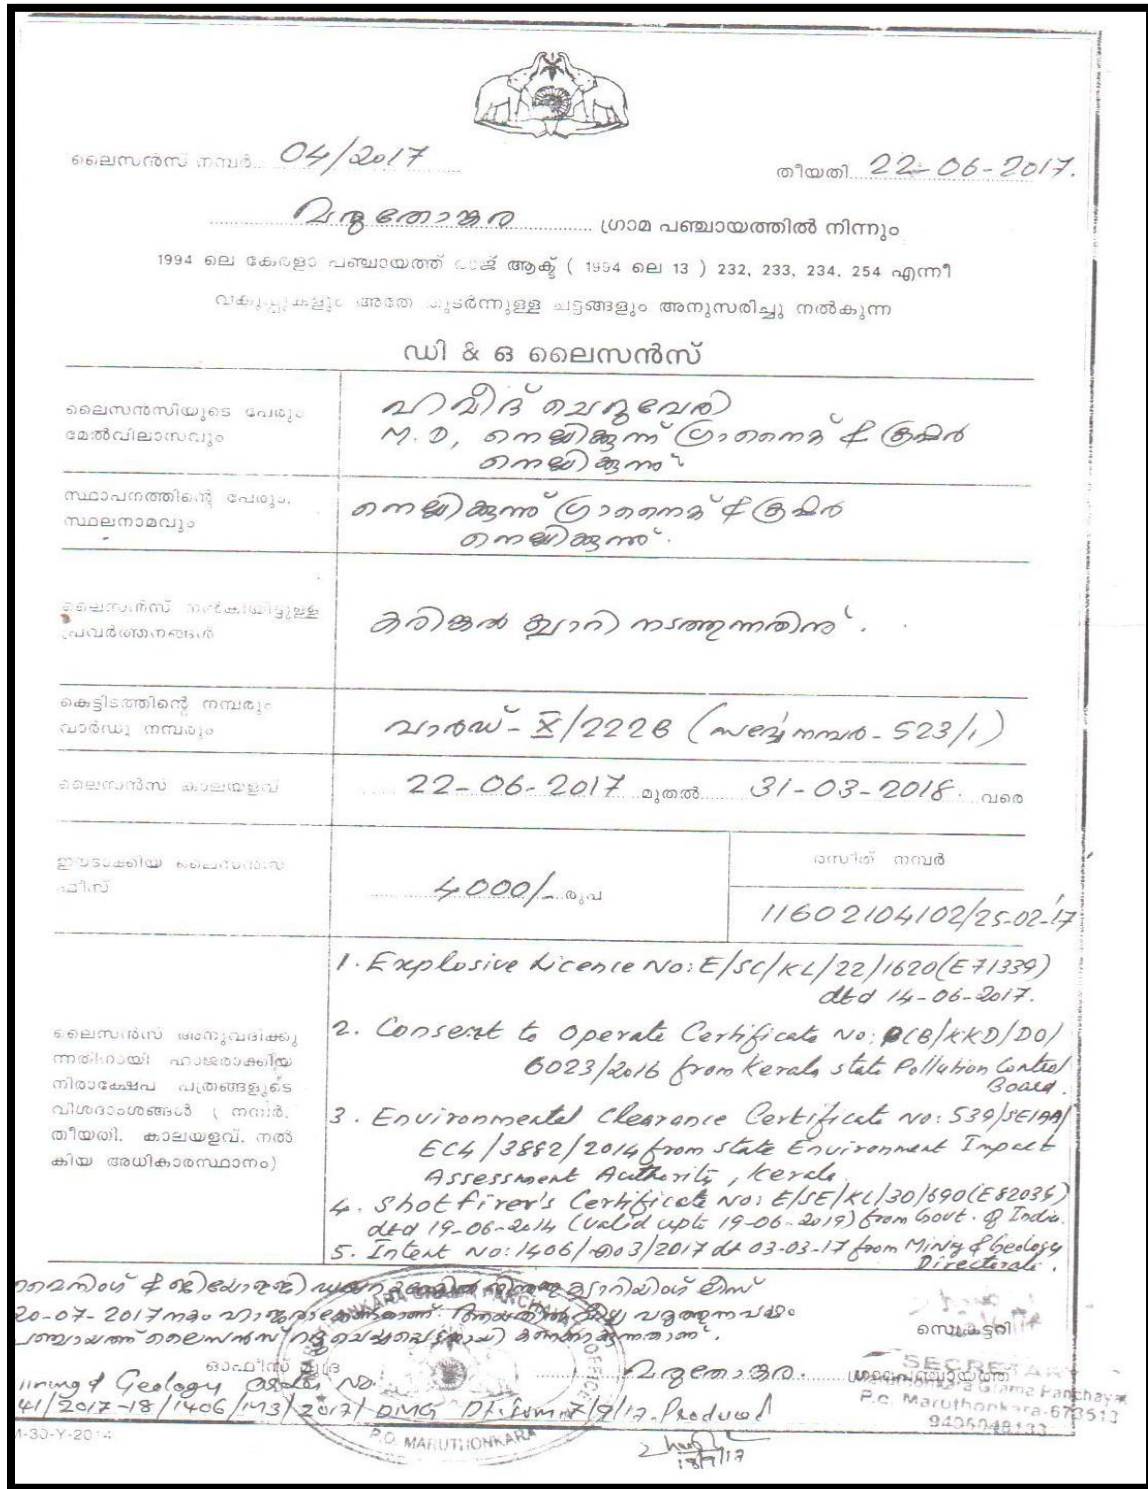 ലൈസൻസ് നമ്പർ 04/2017
തീയതി 22-06-2017.
മരുതോങ്കര ഗ്രാമ പഞ്ചായത്തിൽ നിന്നും
1994 ലെ കേരളാ പഞ്ചായത്ത് രാജ് ആക്ട് ( 1994 ലെ 13 ) 232, 233, 234, 254 എന്നീ
വകുപ്പുകളും അതേ തുടർന്നുള്ള ചട്ടങ്ങളും അനുസരിച്ചു നൽകുന്ന
ഡി & ഒ ലൈസൻസ്
ലൈസൻസിയുടെ പേരും
മേൽവിലാസവും
ചെറുവേരി
M.D, നെല്ലിക്കുന്ന് ഗ്രാനൈറ്റ് & ക്രഷർ
നെല്ലിക്കുന്ന്
സ്ഥാപനത്തിന്റെ പേരും,
സ്ഥലനാമവും
നെല്ലിക്കുന്ന് ഗ്രാനൈറ്റ് & ക്രഷർ
നെല്ലിക്കുന്ന്.
ലൈസൻസ് നൽകിയിട്ടുള്ള
പ്രവർത്തനങ്ങൾ
കരിങ്കൽ ക്വാറി നടത്തുന്നതിന്.
കെട്ടിടത്തിന്റെ നമ്പരും
വാർഡു നമ്പരും
വാർഡ് - X/222B (സർവ്വെ നമ്പർ - 523/1)
ലൈസൻസ് കാലയളവ്
22-06-2017 മുതൽ 31-03-2018. വരെ
ഈടാക്കിയ ലൈസൻസ്
ഫീസ്
4000/- രൂപ
രസീത് നമ്പർ
11602104102/25-02-17
ലൈസൻസ് അനുവദിക്കു
ന്നതിനായി ഹാജരാക്കിയ
നിരാക്ഷേപ പത്രങ്ങളുടെ
വിശദാംശങ്ങൾ ( നമ്പർ,
തീയതി, കാലയളവ്, നൽ
കിയ അധികാരസ്ഥാനം)
1. Explosive Licence No: E/SC/KL/22/1620(E71339)
dtd 14-06-2017.
2. Consent to Operate Certificate No: PCB/KKD/DO/
6023/2016 from Kerala state Pollution Control
Board.
3. Environmental Clearance Certificate No: 539/SEIAA/
EC4/3882/2014 from State Environment Impact
Assessment Authority, Kerala.
4. Shot firer's Certificate No: E/SE/KL/30/690(E82039)
dtd 19-06-2014 (valid upto 19-06-2019) from Govt. of India.
5. Intent No: 1406/എം3/2017 dt 03-03-17 from Mining & Geology
Directorate.
മൈനിംഗ് & ജിയോളജി ക്വാറിയിംഗ് ലീസ്
20-07-2017നകം
പഞ്ചായത്ത് ലൈസൻസ് കണക്കാക്കുന്നതാണ്.
സെക്രട്ടറി
ഓഫീസ് മുദ്ര
മരുതോങ്കര. ഗ്രാമപഞ്ചായത്ത്
SECRETARY
Maruthonkara Grama Panchayat
P.O. Maruthonkara-673513
Mining & Geology No.
41/2017-18/1406/M3/2017/DMG 7/7/17. Produced
P.O. MARUTHONKARA
M-30-Y-2014
18/7/17